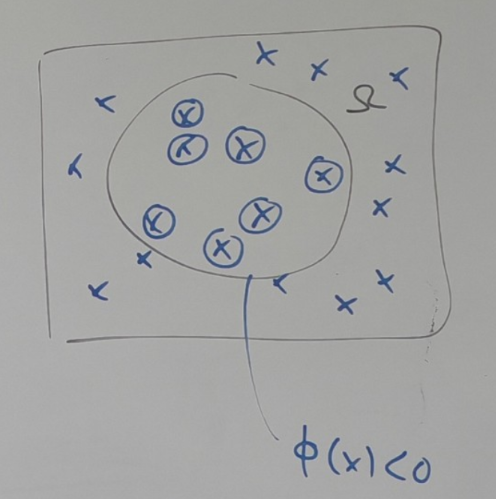 Ω
ϕ(x)<0